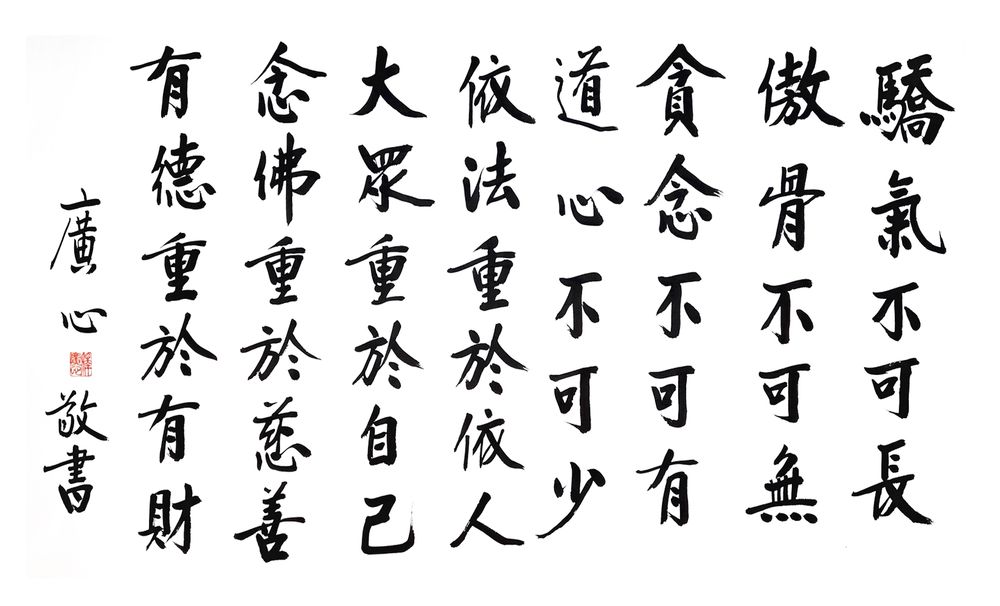 驕氣不可長
傲骨不可無
貪念不可有
道心不可少
依法重於依人
大眾重於自己
念佛重於慈善
有德重於有財
廣心敬書